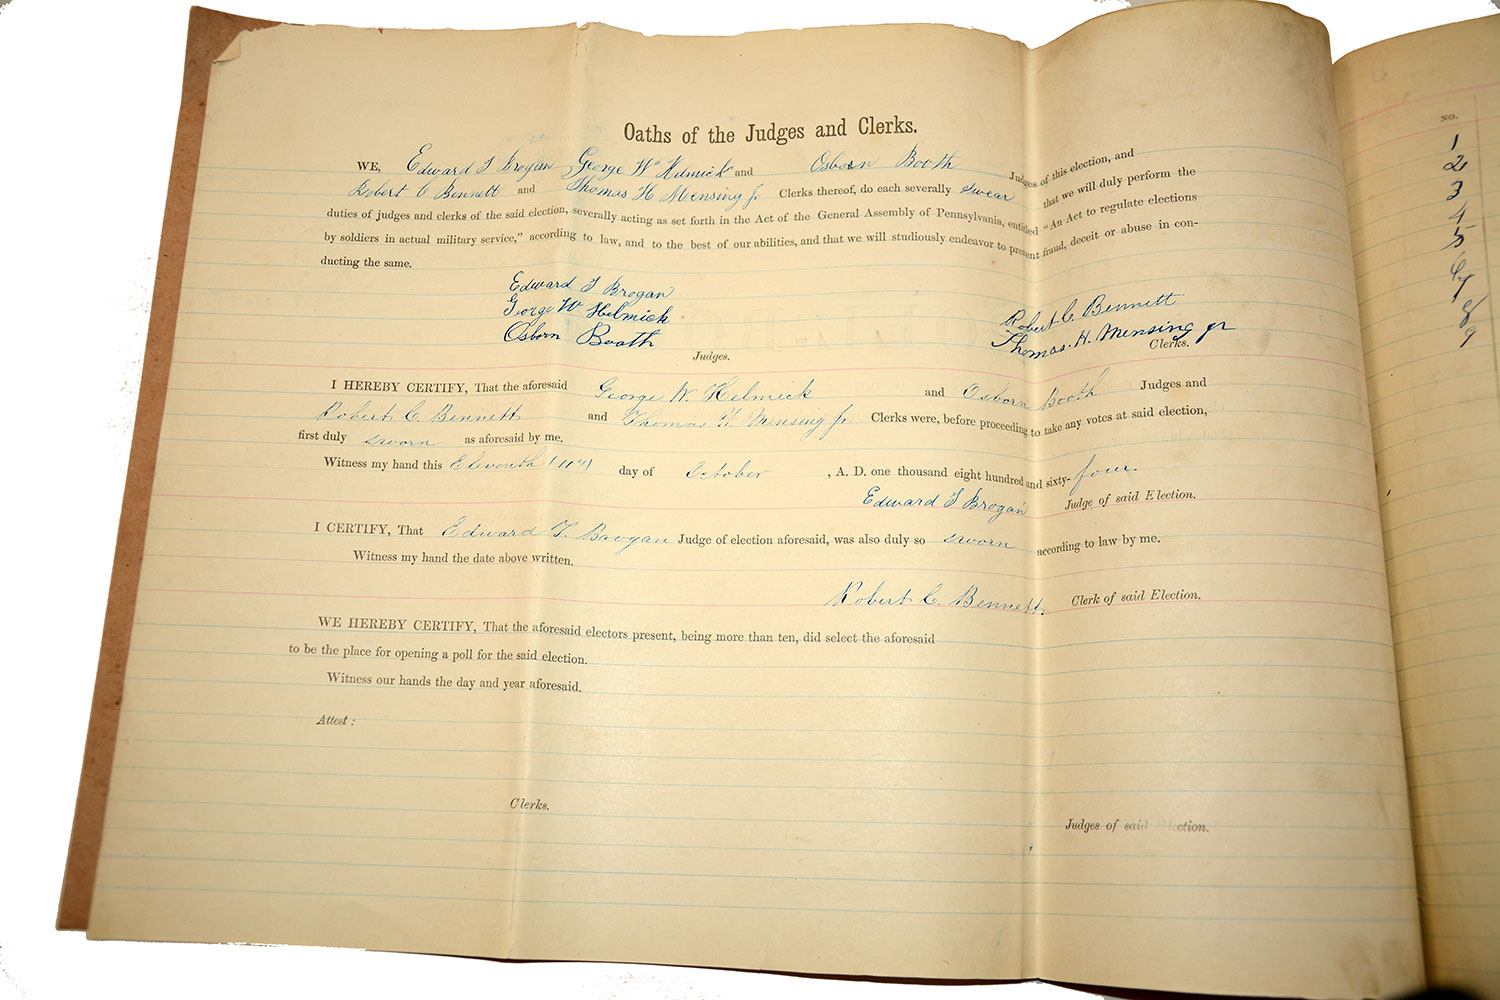 Oaths of the Judges and Clerks.
WE, Edward T Brogan George W Helmick and Osborn Booth Judges of this election, and
Robert C Bennett and Thomas H Mensing Jr Clerks thereof, do each severally swear that we will duly perform the
duties of judges and clerks of the said election, severally acting as set forth in the Act of the General Assembly of Pennsylvania, entitled "An Act to regulate elections
by soldiers in actual military service," according to law, and to the best of our abilities, and that we will studiously endeavor to prevent fraud, deceit or abuse in con-
ducting the same.
Edward T Brogan
George W Helmick
Osborn Booth
Judges.
Robert C. Bennett
Thomas H. Mensing Jr
Clerks.
I HEREBY CERTIFY, That the aforesaid George W. Helmick and Osborn Booth Judges and
Robert C. Bennett and Thomas H. Mensing Jr. Clerks were, before proceeding to take any votes at said election,
first duly sworn as aforesaid by me.
Witness my hand this Eleventh (11th) day of October , A. D. one thousand eight hundred and sixty- four.
Edward T Brogan Judge of said Election.
I CERTIFY, That Edward T. Brogan Judge of election aforesaid, was also duly so sworn according to law by me.
Witness my hand the date above written.
Robert C. Bennett. Clerk of said Election.
WE HEREBY CERTIFY, That the aforesaid electors present, being more than ten, did select the aforesaid
to be the place for opening a poll for the said election.
Witness our hands the day and year aforesaid.
Attest :
Clerks.
Judges of said Election.
No.
1
2
3
4
5
6
7
8
9